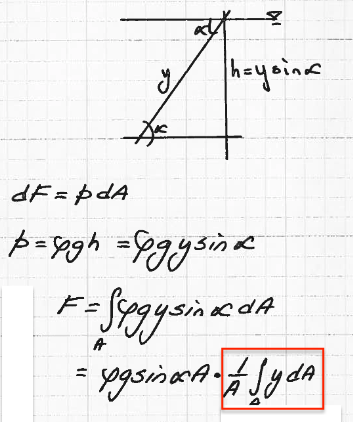 α
y
h = y sin α
α
dF = p dA
p = φgh = φg y sin α
F = ∫_A φg y sin α dA
= φg sin α A · 1/A ∫_A y dA